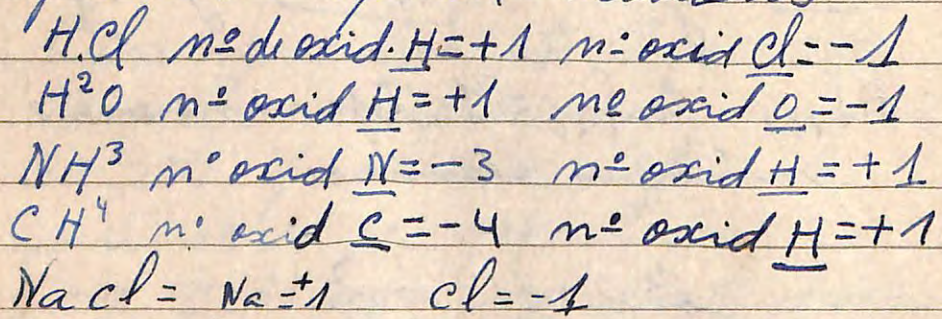 H.Cl nº de oxid. H=+1 nº oxid Cl=-1
H²O nº oxid H=+1 nº oxid O=-1
NH³ nº oxid N=-3 nº oxid H=+1
CH⁴ nº oxid C=-4 nº oxid H=+1
Na cl= Na=+1 cl=-1